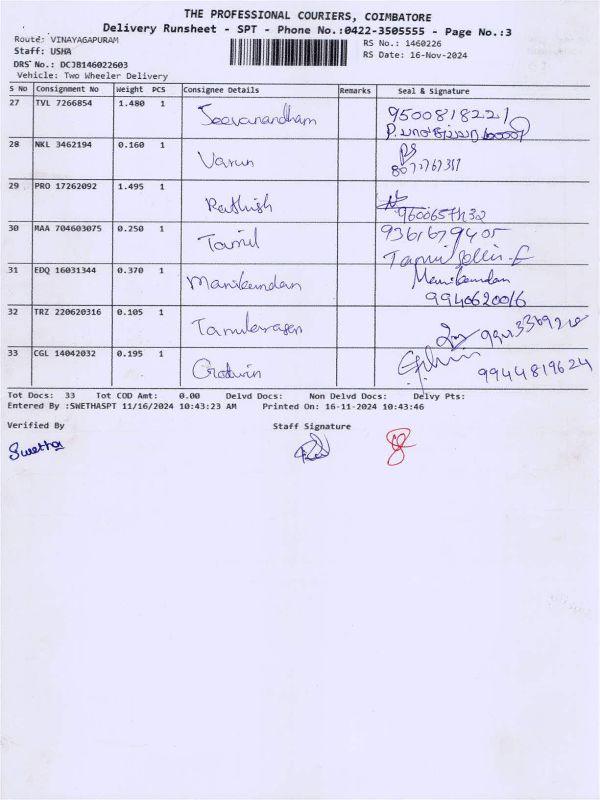 THE PROFESSIONAL COURIERS, COIMBATORE
Delivery Runsheet - SPT - Phone No.:0422-3505555 - Page No.:3
Route: VINAYAGAPURAM RS No.: 1460226
Staff: USHA RS Date: 16-Nov-2024
DRS No.: DCJB146022603
Vehicle: Two Wheeler Delivery
S No Consignment No Weight PCS Consignee Details Remarks Seal & Signature
27 TVL 7266854 1.480 1 Jeevanandham 9500818221
28 NKL 3462194 0.160 1 Varun
29 PRO 17262092 1.495 1 Rathish
30 MAA 704603075 0.250 1 Tamil 9361679405
Tamil Selvin-E
31 EDQ 16031344 0.370 1 Manikandan Manikandan
9940620016
32 TRZ 220620316 0.105 1 Tamilarasan
33 CGL 14042032 0.195 1 Godwin 9944819624
Tot Docs: 33 Tot COD Amt: 0.00 Delvd Docs: Non Delvd Docs: Delvy Pts:
Entered By :SWETHASPT 11/16/2024 10:43:23 AM Printed On: 16-11-2024 10:43:46
Verified By Staff Signature
Swetha